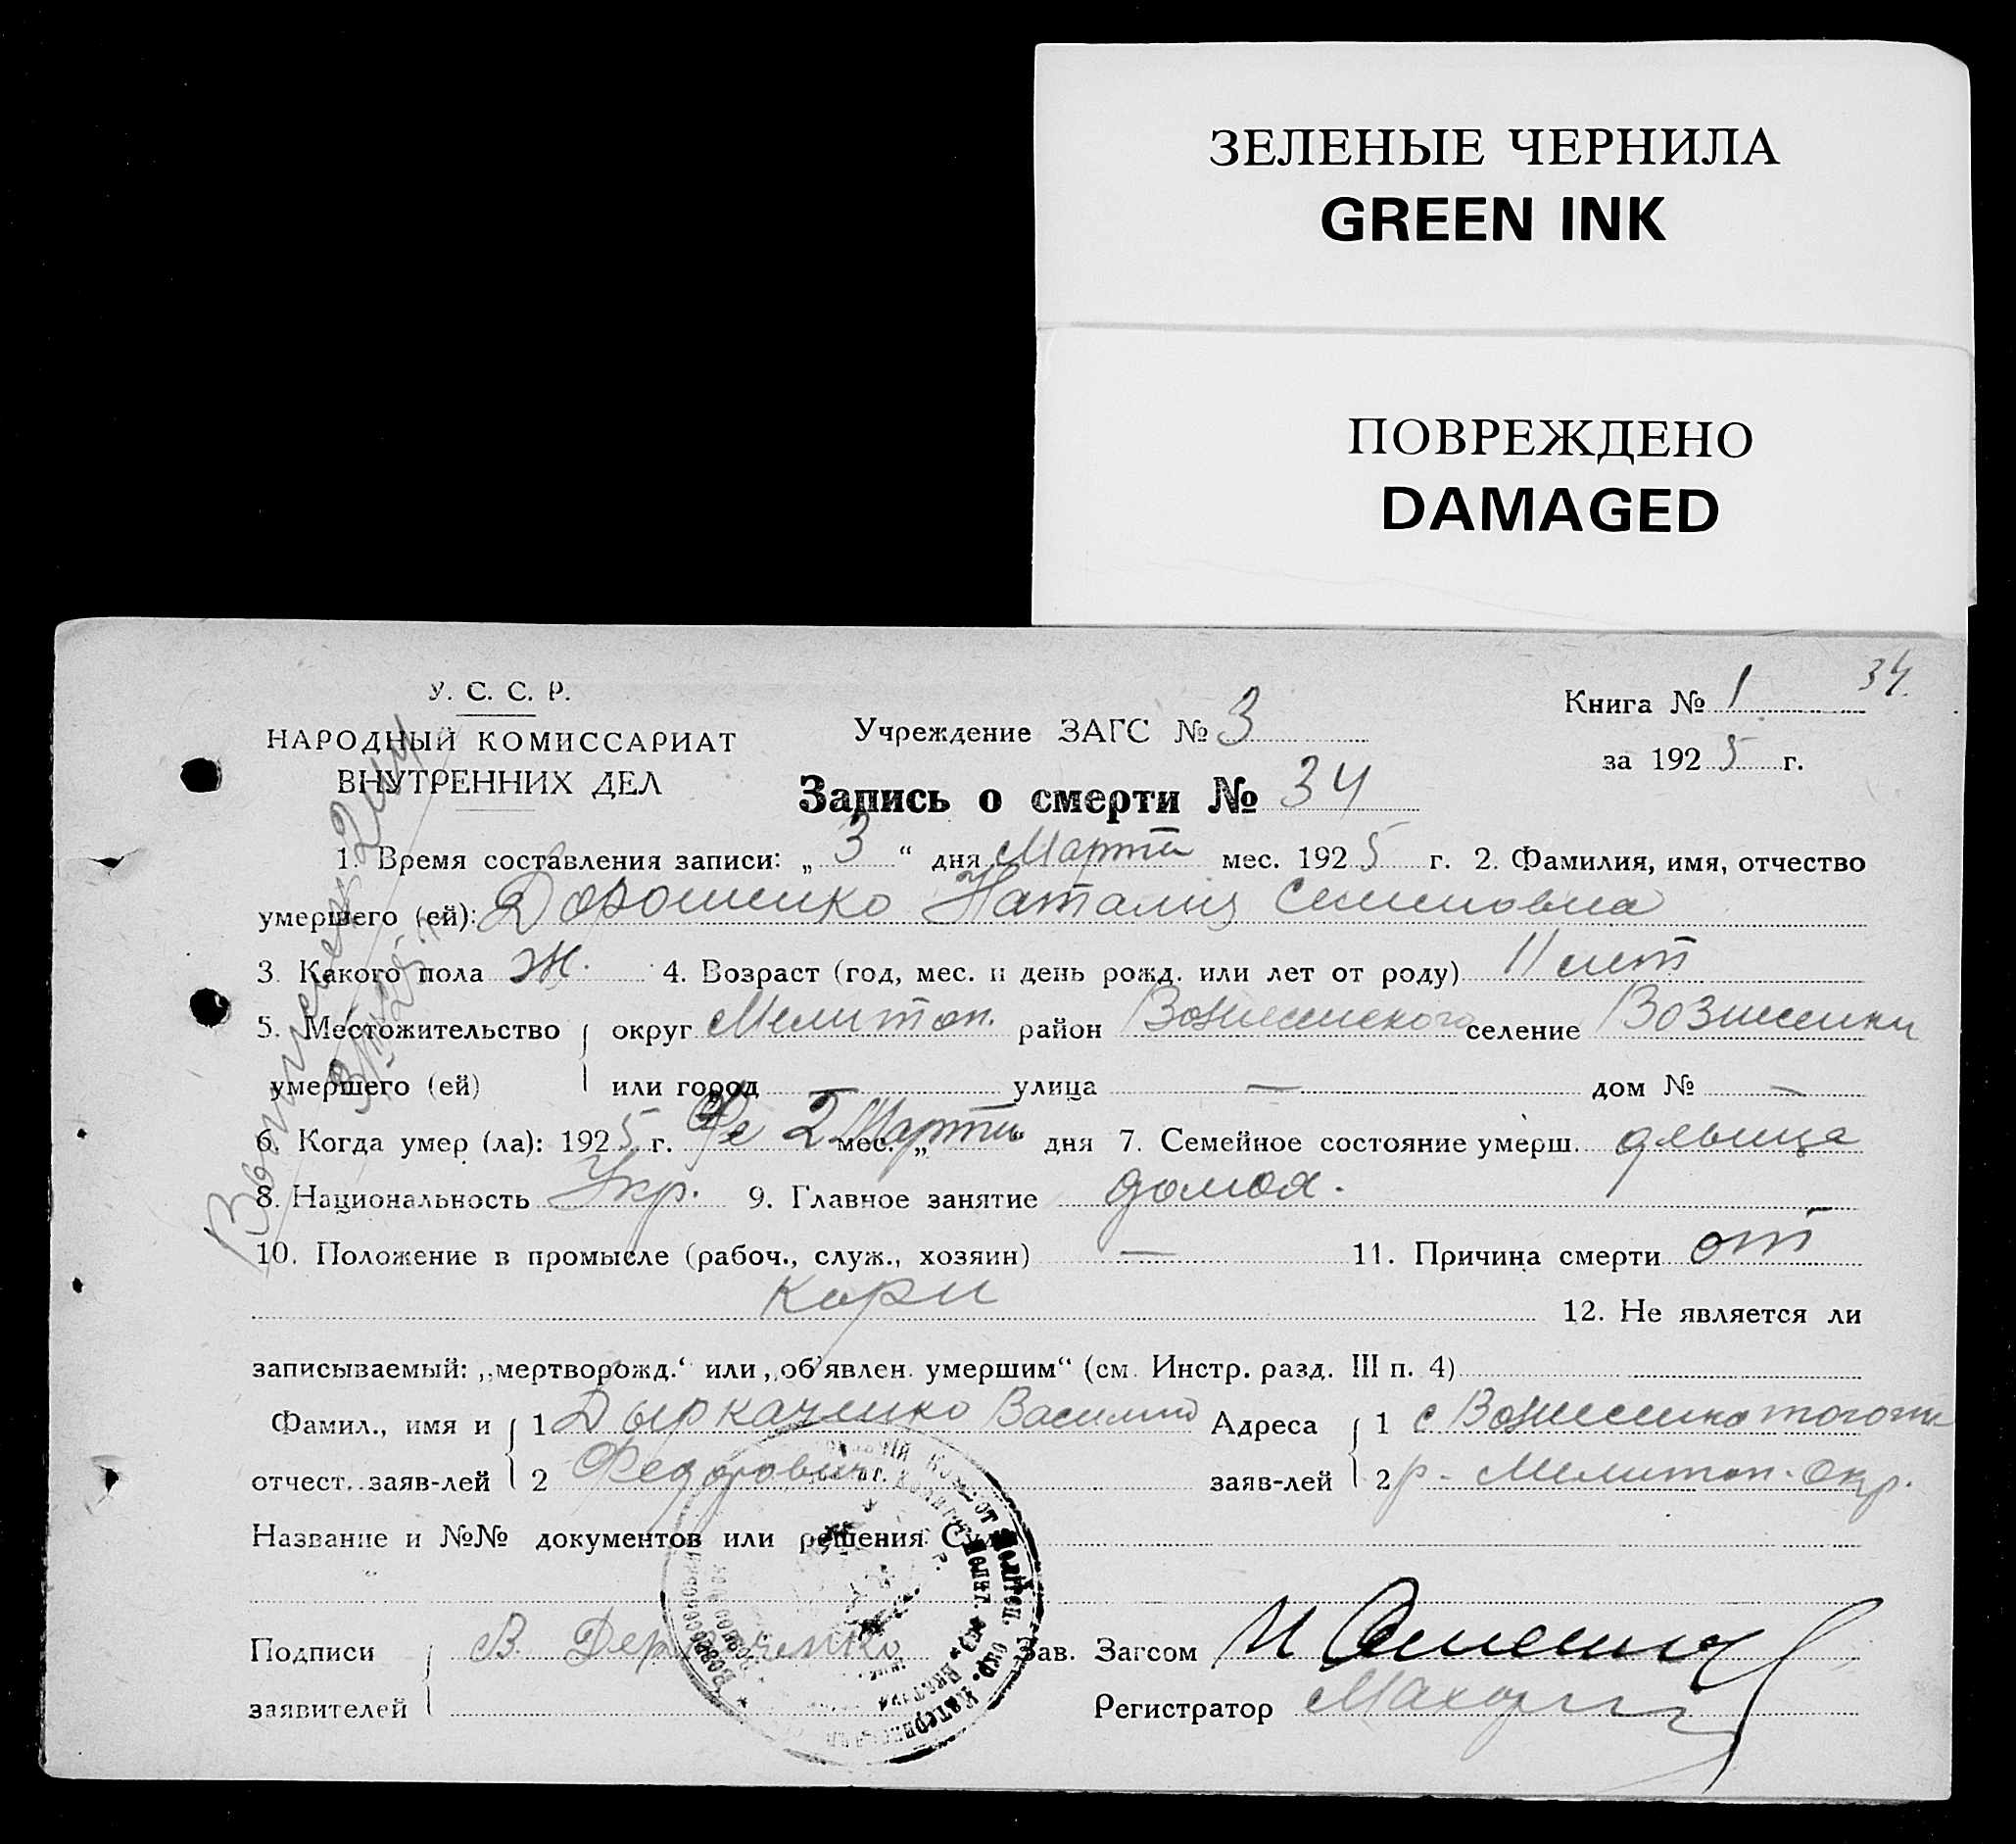 ЗЕЛЕНЫЕ ЧЕРНИЛА
GREEN INK
ПОВРЕЖДЕНО
DAMAGED
34.
У. С. С. Р.
НАРОДНЫЙ КОМИССАРИАТ
ВНУТРЕННИХ ДЕЛ
Учреждение ЗАГС № 3
Книга № 1
за 1925 г.
Запись о смерти № 34
1. Время составления записи: „ 3 “ дня Марта мес. 1925 г. 2. Фамилия, имя, отчество
умершего (ей): Дорошенко Наталия Семеновна
3. Какого пола Ж. 4. Возраст (год, мес. и день рожд. или лет от роду) 11 лет
5. Местожительство округ Мелитоп. район Вознесенского селение Вознесенки
умершего (ей) или город — улица — дом № —
6. Когда умер (ла): 1925 г. 2 мес. „ Марта “ дня 7. Семейное состояние умерш. девица
8. Национальность Укр. 9. Главное занятие домох.
10. Положение в промысле (рабоч., служ., хозяин) — 11. Причина смерти от
кори 12. Не является ли
записываемый: „мертворожд.‘ или „об’явлен. умершим“ (см. Инстр. разд. III п. 4)
Фамил., имя и 1 Дыркаченко Василий Адреса 1 с Вознесенка того ж
отчест. заяв-лей 2 Федорович заяв-лей 2 р. Мелитоп. Окр.
Название и №№ документов или решения Суда
Подписи В. Зав. Загсом И
заявителей Регистратор